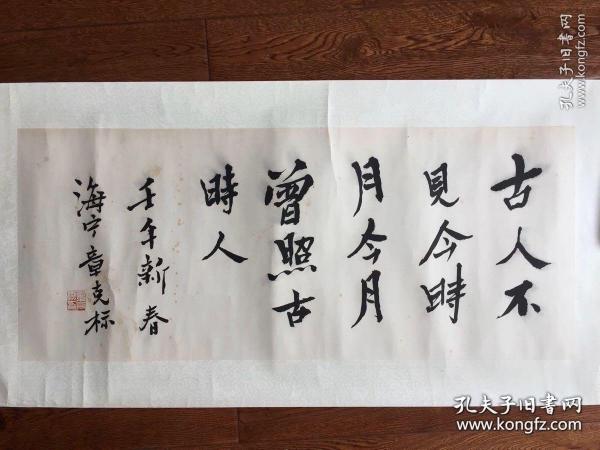 古人不
見今時
月今月
曾照古
時人
壬午新春
海宁章克标
孔夫子旧书网
www.kongfz.com
孔夫子旧书网
www.kongfz.com